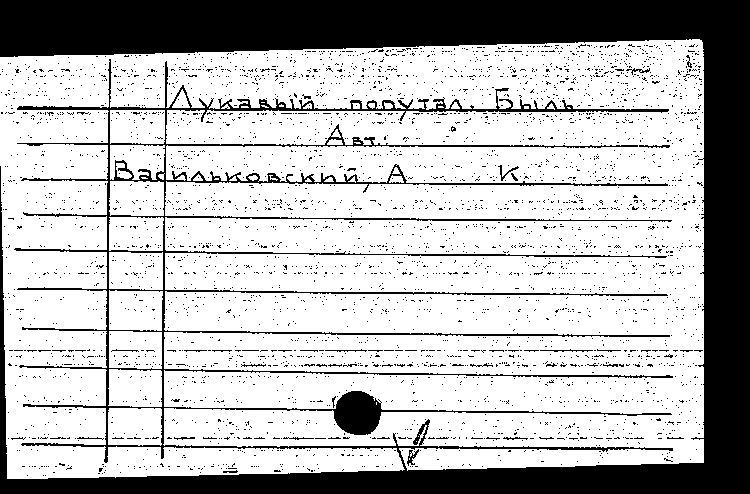 Лукавый попутал. Быль
Авт.:
Васильковский, А К.